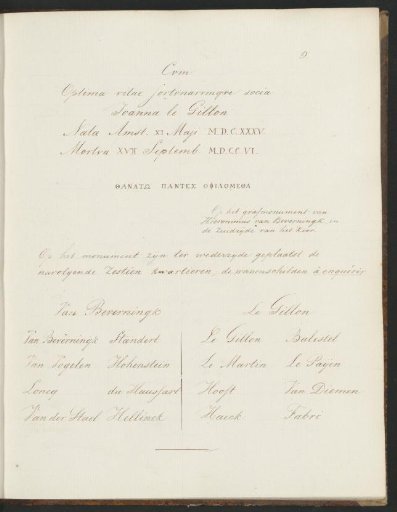 9
Cvm
Optima vitae fortvnarvmqve socia
Joanna le Gillon
Nata Amst. XI Maji M.D.C.XXXV.
Mortva XVII Septemb. M.D.CC.VI.
ΘΑΝΑΤΩ ΠΑΝΤΕΣ ΟΦΙΛΟΜΕΘΑ
Op het grafmonument van
Hieronimus van Beverningk in
de Zuidzijde van het koor.
Op het monument zijn ter wederzijde geplaatst de
navolgende Zestien kwartieren, de wapenschilden à enquérir
Van Beverningk Le Gillon
Van Beverningk Standert Le Gillon Balestel
Van Tegelen Hohenstein Le Martin Le Payen
Loncq die Hausfart Hooft Van Diemen
Van der Stael Hellinck Haeck Fabri